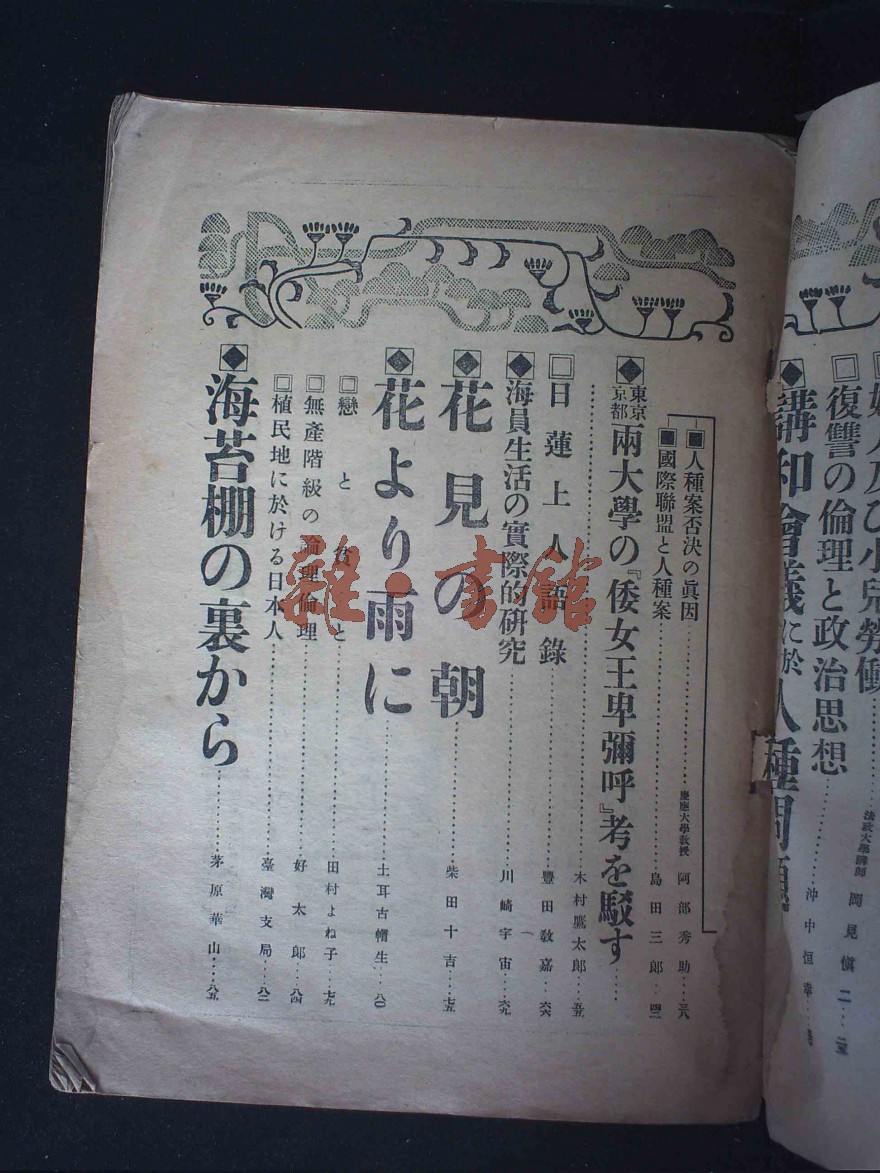 復讐の倫理と政治思想…………沖中恒幸…
法政大學講師 岡見愼二…二五
講和會議に於
人種問題
■人種案否決の眞因…………慶應大學教授 阿部秀助…三八
■國際聯盟と人種案…………島田三郎…四二
◆東京京都兩大學の『倭女王卑彌呼』考を駁す……
……木村鷹太郎…五五
□日蓮上人語錄…………豐田敎嘉…六六
◆海員生活の實際的研究…………川崎宇宙…六九
◆花見の朝…………柴田十吉…七五
◆花より雨に…………土耳古帽生…八〇
□戀と貧と…………田村よね子…七九
□無產階級の論理倫理…………好太郎…八四
□植民地に於ける日本人…………臺灣支局…八二
◆海苔棚の裏から…………茅原華山…八五
雜・書館